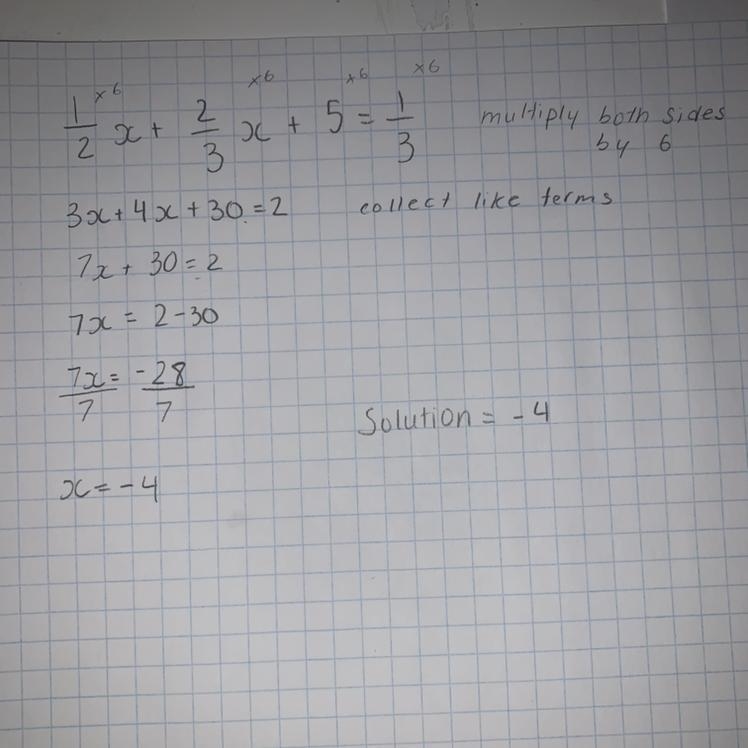 ×6 ×6 ×6 ×6
1/2 x + 2/3 x + 5 = 1/3 multiply both sides
by 6
3x + 4x + 30 = 2 collect like terms
7x + 30 = 2
7x = 2 - 30
7x/7 = -28/7
Solution = -4
x = -4